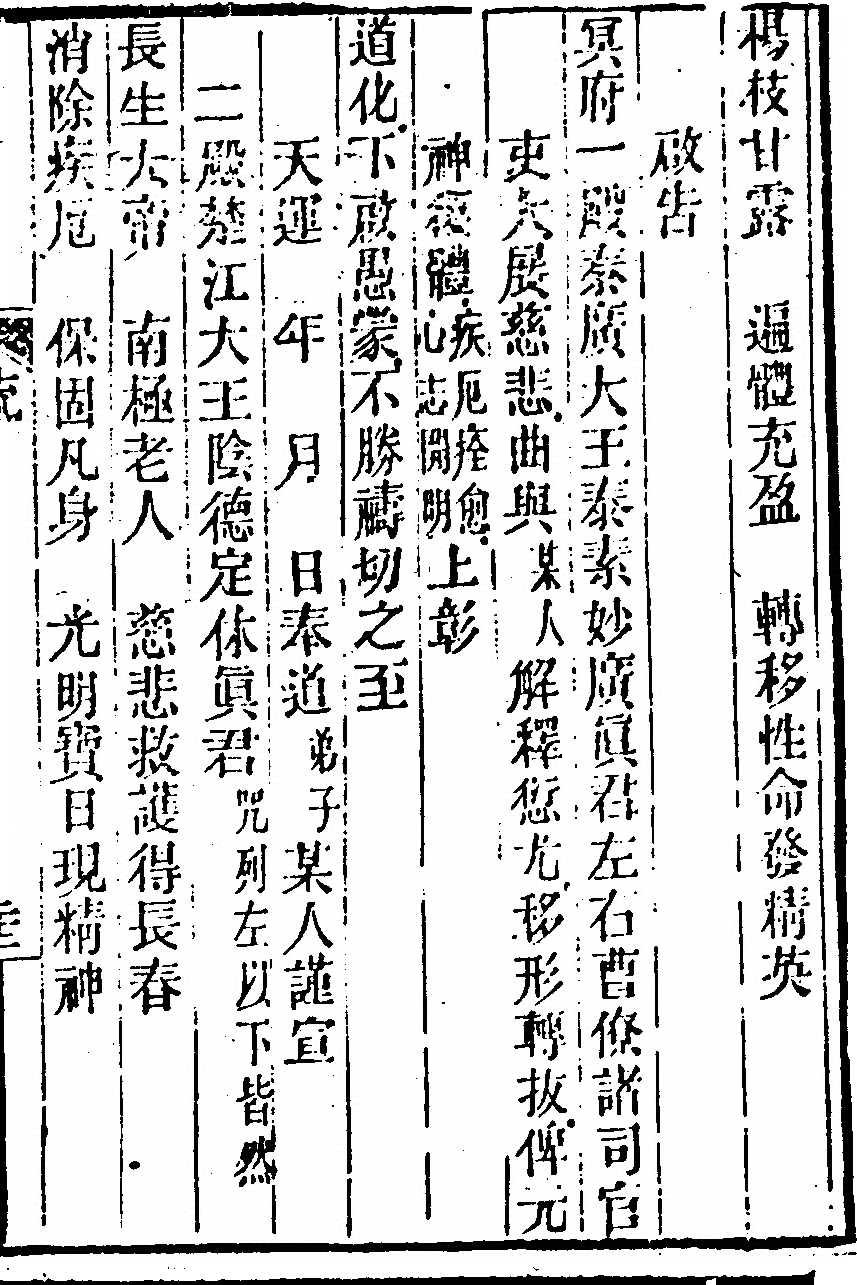 楊枝甘露　遍體充盈　轉移性命發精英
啟告
冥府一殿泰廣大王泰素妙廣眞君左右曹僚諸司官
吏大展慈悲曲與某人解釋愆尤移形轉抜俾元
神復體疾厄痊愈心志開明上彰
道化下啟愚蒙不勝禱切之至
天運　年　月　日奉道弟子某人謹宣
二殿楚江大王陰德定休眞君咒列左以下皆然
長生大帝　南極老人　慈悲救護得長春
消除疾厄　保固凡身　光明寶日現精神